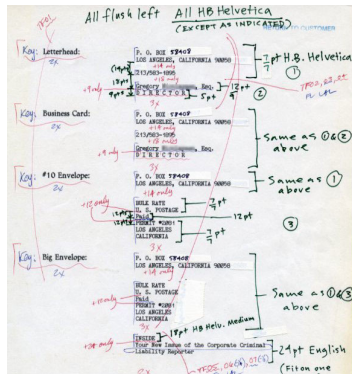 All flush left All HB Helvetica
(EXCEPT AS INDICATED)
Key: Letterhead:
2x
P. O. BOX 58408
LOS ANGELES, CALIFORNIA 90058
+14 only
213/583-1895
+18 only
Gregory Esq.
DIRECTOR
3x
7/7 pt H.B. Helvetica
①
12 pt
5pt
②
+9 only
Key: Business Card:
2x
P. O. BOX 58408
LOS ANGELES, CALIFORNIA 90058
+14 only
213/583-1895
+18 only
Gregory Esq.
DIRECTOR
3x
+9 only
Same as ①&②
above
Key: #10 Envelope:
2x
P. O. BOX 58408
LOS ANGELES, CALIFORNIA 90058
+14 only
Same as ①
above
BULK RATE
U. S. POSTAGE
Paid
PERMIT #2001
LOS ANGELES
CALIFORNIA
3x
+12 only
12pt
12pt
7/7 pt
12pt
7/7 pt
③
Key: Big Envelope:
2x
P. O. BOX 58408
LOS ANGELES, CALIFORNIA 90058
+14 only
BULK RATE
U. S. POSTAGE
Paid
PERMIT #2001
LOS ANGELES
CALIFORNIA
3x
Same as ①&③
above
18pt HB Helv. Medium
INSIDE
Your New Issue of the Corporate Criminal
Liability Reporter
24pt English
(Fit on one